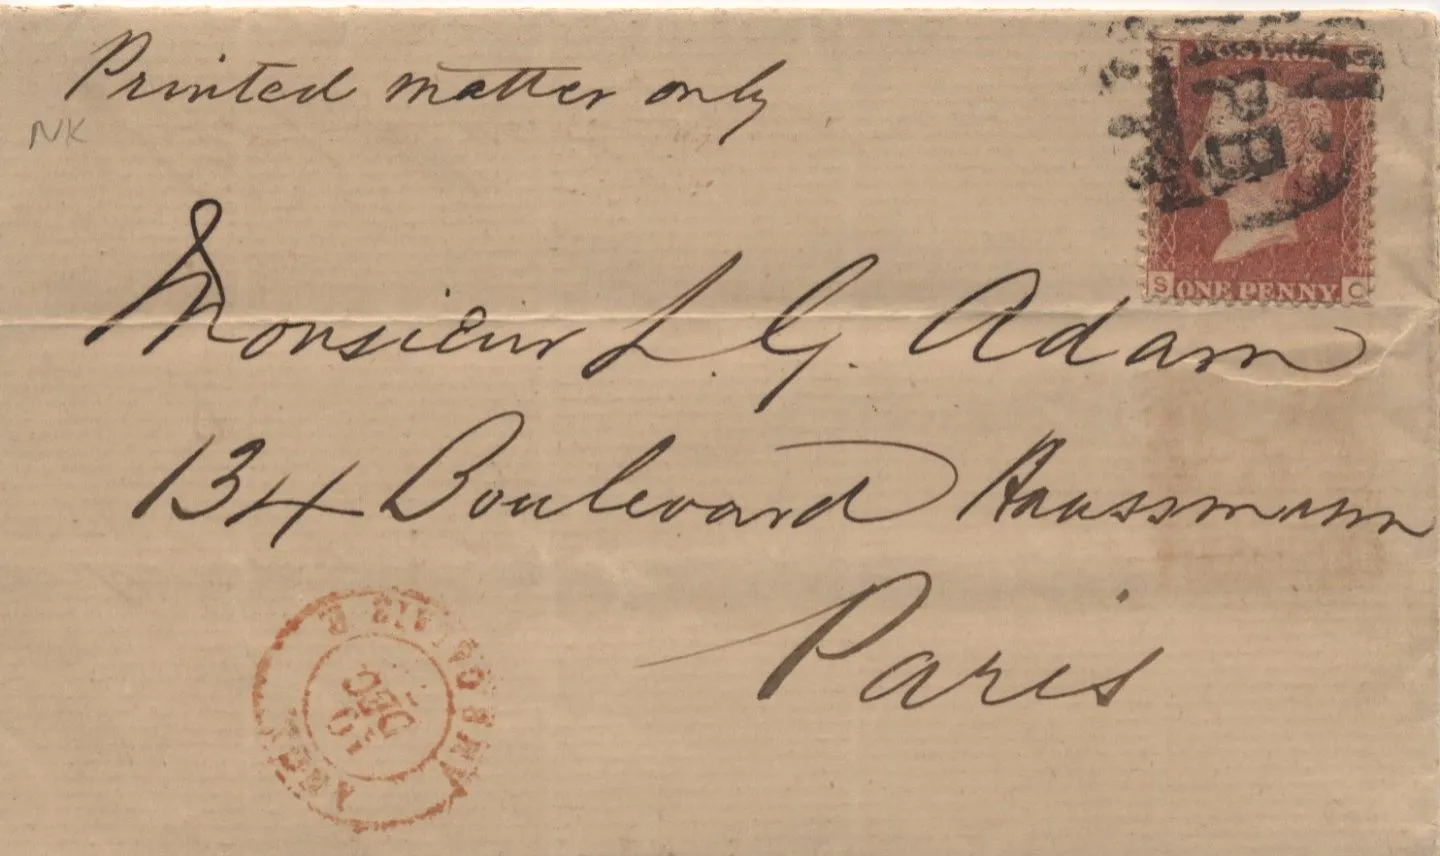 Printed matter only
NK
Monsieur L. G. Adam
134 Boulevard Haussmann
Paris
S ONE PENNY C
10
DEC
CALAIS